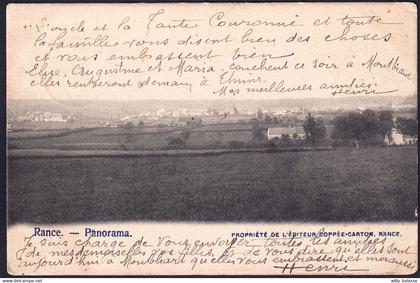 L'oncle et la Tante Couronné et toute
la famille vous disent bien des choses
et vous embrassent bien
Elise, Augustine et Maria couchent ce soir à Montbliart
elles rentreront demain à
Mes meilleures amitiés
Henri
Rance. — Panorama.
PROPRIÉTÉ DE L'ÉDITEUR COPPÉE-CARTON, RANCE.
Je me charge de vous envoyer toutes les amitiés
de mesdemoiselles vos filles, de vous dire qu'elles sont
aujourd'hui à Montbliart qu'elles vous embrassent et moi aussi
Henri